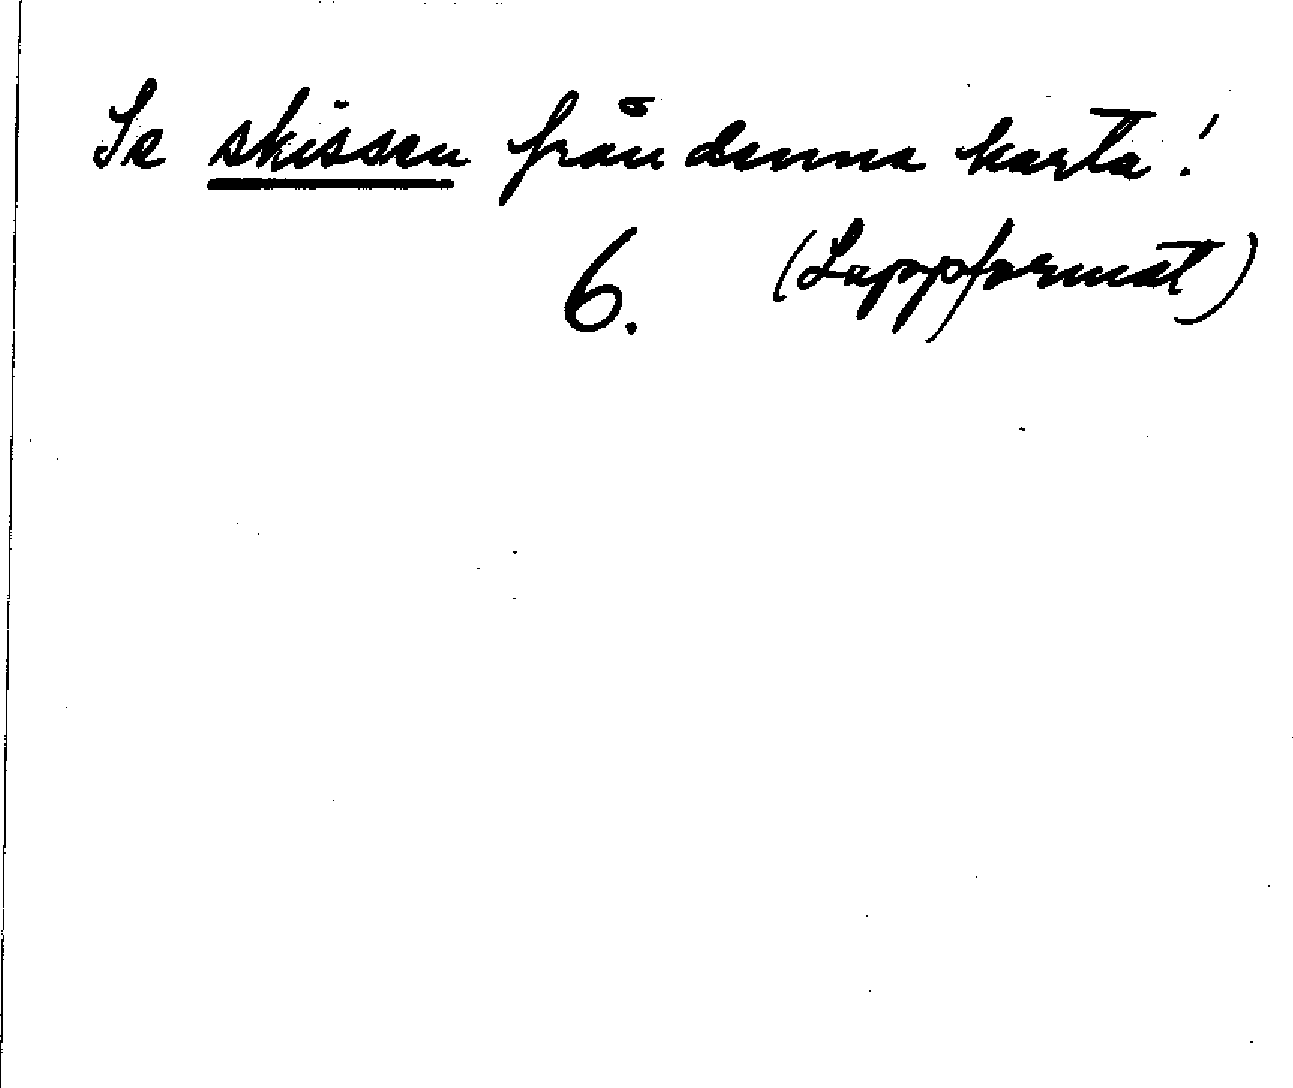 Se skissen från denna karta!
6. (Lappformat)